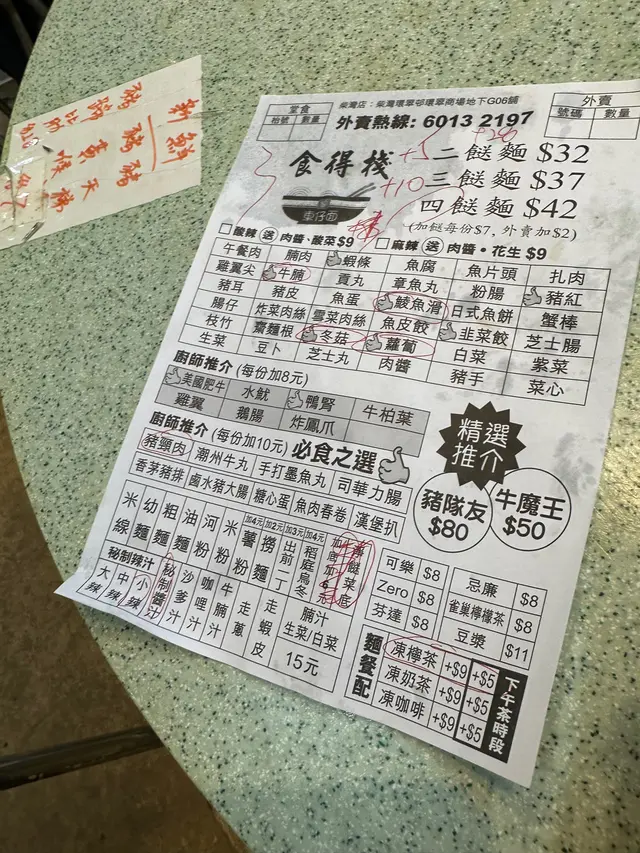 堂食
枱號 數量
柴灣店：柴灣環翠邨環翠商場地下G06舖
外賣熱線: 6013 2197
外賣
號碼 數量
食得棧
車仔麵
二餸麵 $32
三餸麵 $37
四餸麵 $42
(加餸每份$7, 外賣加$2)
+5
+10
酸辣 送 肉醬、酸菜 $9 麻辣 送 肉醬・花生 $9
午餐肉 腩肉 蝦條 魚腐 魚片頭 扎肉
雞翼尖 牛腩 貢丸 章魚丸 粉腸 豬紅
豬耳 豬皮 魚蛋 鯪魚滑 日式魚餅 蟹棒
腸仔 炸菜肉絲 雪菜肉絲 魚皮餃 韭菜餃 芝士腸
枝竹 齋麵根 冬菇 蘿蔔 白菜 紫菜
生菜 豆卜 芝士丸 肉醬 豬手 菜心
廚師推介 (每份加8元)
美國肥牛 水魷 鴨腎 牛柏葉
雞翼 鵝腸 炸鳳爪
廚師推介 (每份加10元) 必食之選
豬頸肉 潮州牛丸 手打墨魚丸 司華力腸
香茅豬排 鹵水豬大腸 糖心蛋 魚肉春卷 漢堡扒
精選推介
豬隊友 $80
牛魔王 $50
米線 幼麵 粗麵 油麵 河粉 米粉 加4元薯粉 加2元撈麵 加3元出前一丁 加4元稻庭烏冬
秘制辣汁
大辣 中辣 小辣 秘制醬汁 沙爹汁 咖哩汁 牛腩汁 走蔥 走蝦皮
腩汁
生菜/白菜
15元
可樂 $8
Zero $8
芬達 $8
忌廉 $8
雀巢檸檬茶 $8
豆漿 $11
麵餐配
凍檸茶 +$9 +$5
凍奶茶 +$9 +$5
凍咖啡 +$9 +$5
下午茶時段